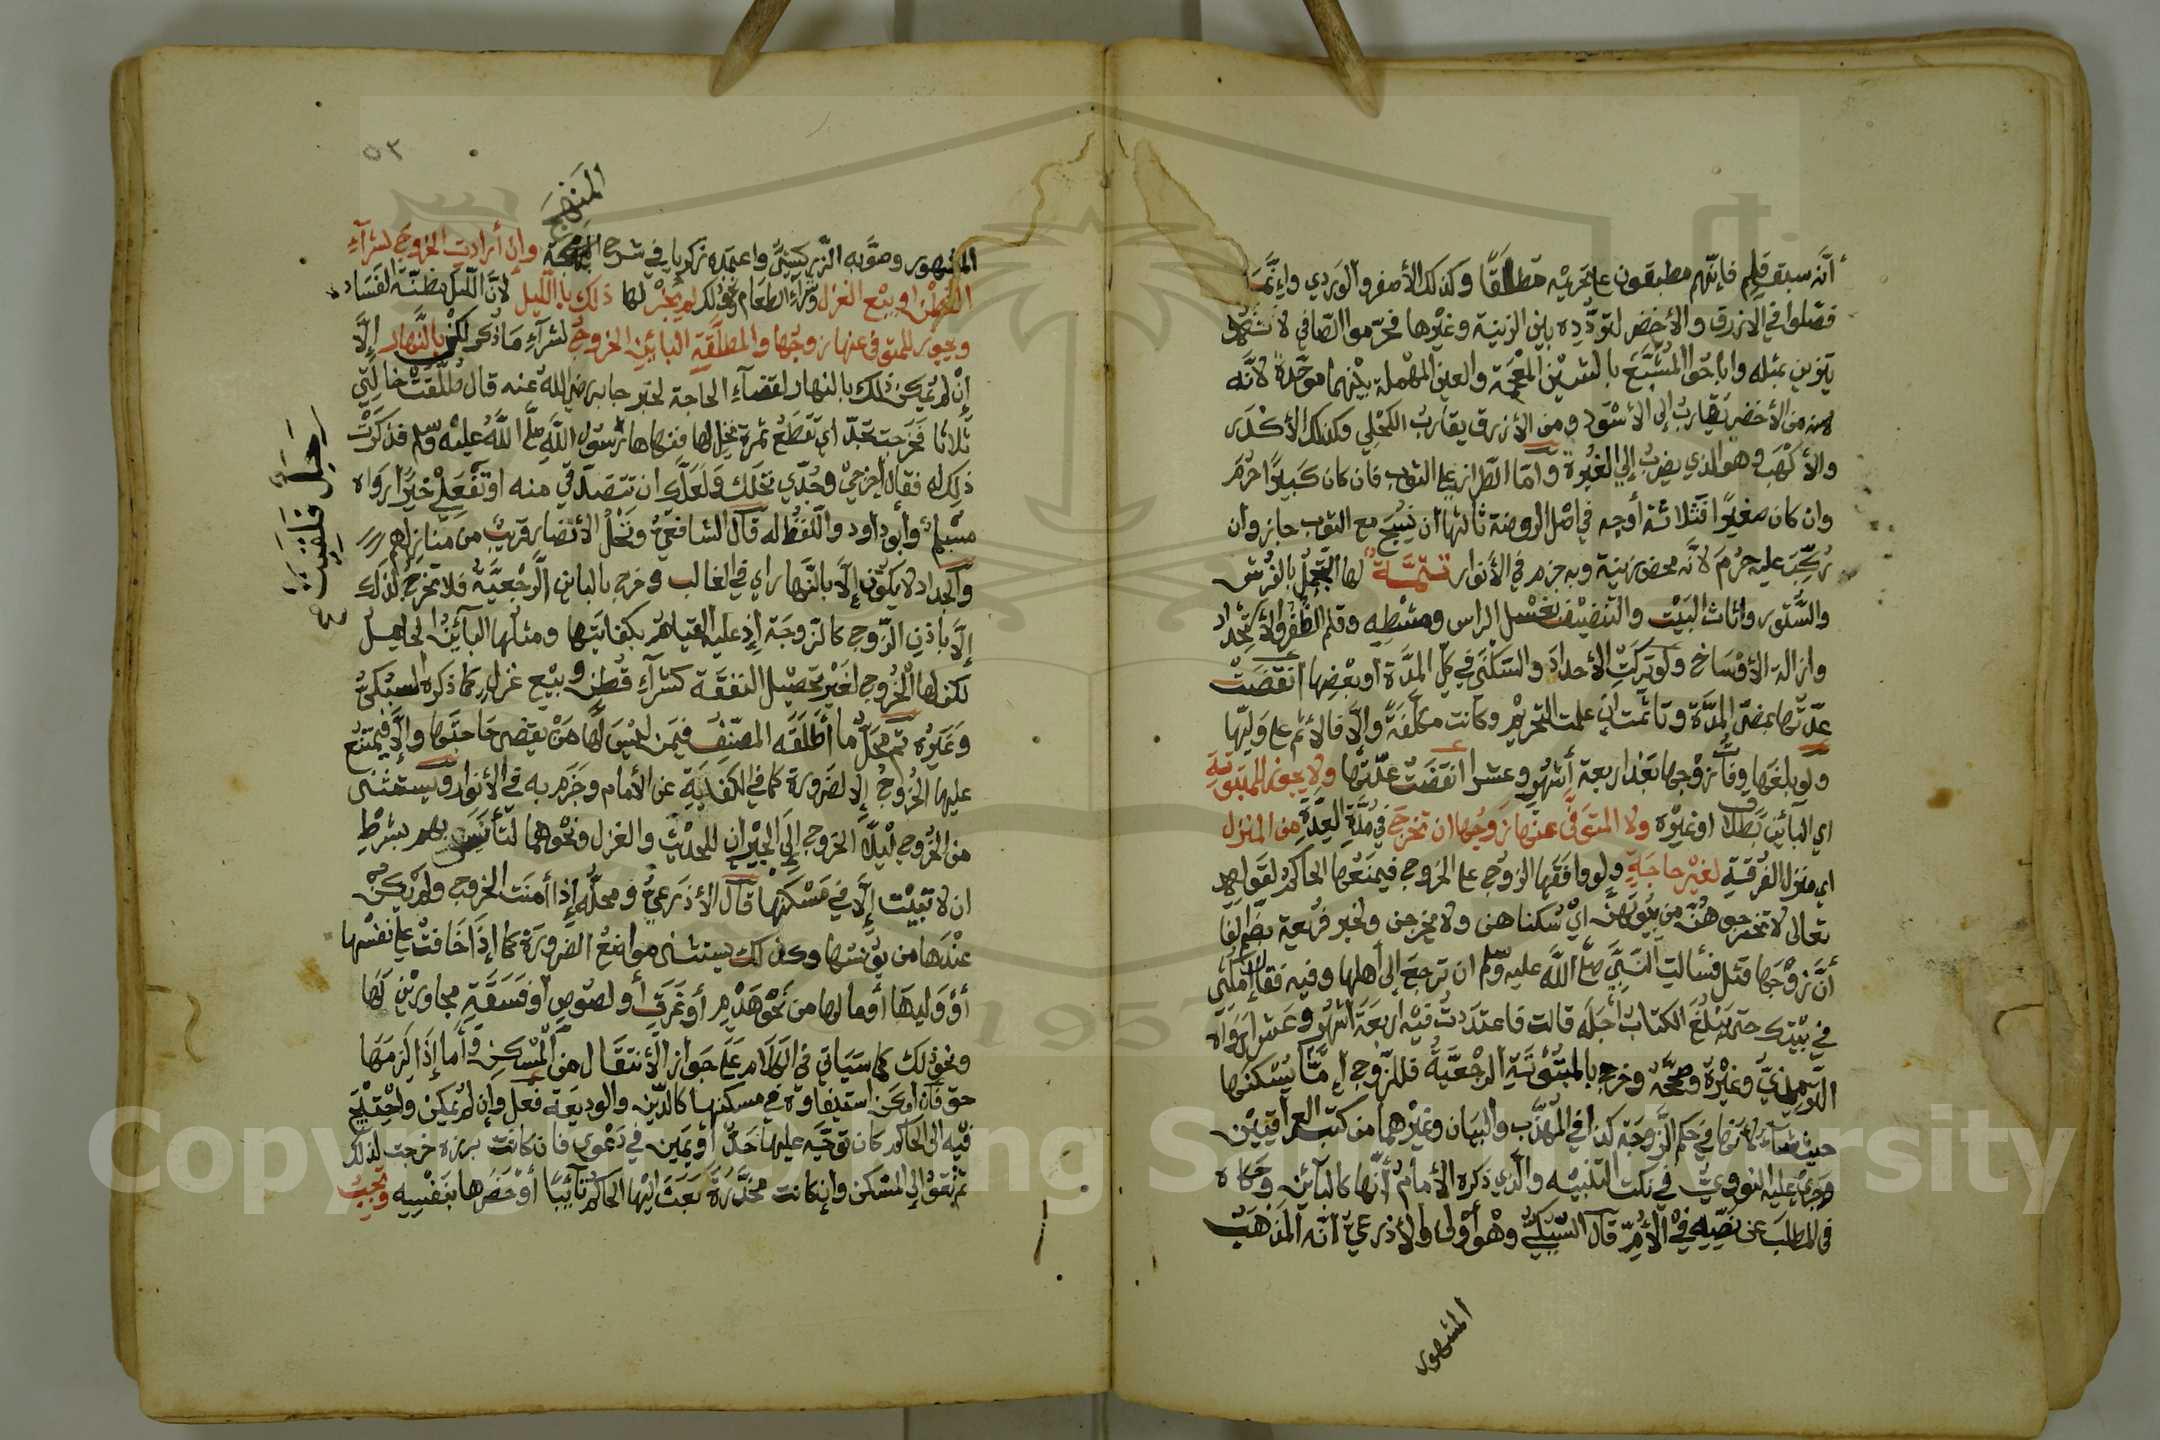 أنه سبق قلم فإنهم مطبقون على تحريمه مطلقًا وكذلك الأصفر والوردي وإنما
فصلوا في الازرق والأخضر لتردده بين الزينة وغيرها فحرموا الصافي لا
يتزين بمثله واباحوا المشبع بالشين المعجمة والعين المهملة بينهما موحدة لأنه
من الأخضر يقارب إلى الأسود ومن الأزرق يقارب الكحلي وكذلك الأكدر
والأكهب وهو الذي يضرب إلى الغبرة واما الطراز على الثوب فان كان كبيرًا حرم
وان كان صغيرًا فثلاثة أوجه في اصل الروضة ثالثها ان نسج مع الثوب جاز وان
ركب عليه حرم لانه محض زينة وبه جزم في الأنوار تتمة لها التجمل بالفرش
والستور واثاث البيت والتنضيف بغسل الراس ومشطه وقلم الظفر والاستحداد
وازالة الأوساخ ولو تركت الأحداد والسكنى في كل المدة او بعضها انقضت
عدتها بمضى المدة وتأثمت ان علمت التحريم وكانت مكلفة وإلا فالأثم على وليها
ولو بلغها وفات زوجها بعد اربعة أشهر وعشرا انقضت عدتها ولا يجوز للمبتوتة
اي البائن بطلاق او غيره ولا المتوفى عنها زوجها ان تخرج في مدة العدة من المنزل
اي منزل الفرقة لغير حاجة ولو وافقها الزوج على الخروج فيمنعها الحاكم لقوله
تعالى لا تخرجوهن من بيوتهن أي سكناهن ولا يخرجن ولخبر فريعة بضم الفا
أن زوجها قتل فسالت النبي صلى الله عليه وسلم ان ترجع إلى أهلها وفيه فقال امكثى
في بيتك حتى يبلغ الكتاب أجله قالت فاعتددت فيه اربعة اشهر وعشرا رواه
الترمذي وغيره وصححه وخرج بالمبتوتة الرجعية فللزوج إ يسكنها
حيث شآء لأنها في حكم الزوجة كذا في المهذب والبيان وغيرهما من كتب العراقيين
وجرى عليه النووي في نكت التنبيه والذي ذكره الأمام أنها كالبائن وحكاه
في المطلب عن نصه في الأم قال السبكي وهو أولى والأذرعي انه المذهب
المشهور
٥٢
المنهج
المشهور وصوبه الزركشي واعتمده زكريا في شرح وإن أرادت الخروج لشرآء
القطن او بيع الغزل وشرآء الطعام ونحو ذلك لم يجز لها ذلك بالليل لأن الليل مظنة الفساد
ويجوز للمتوفى عنها زوجها والمطلقة البائن الخروج لشرآء ما ذكر لكن بالنهار إلا
إن لم يمكن ذلك بالنهار لقضآء الحاجة لخبر جابر رضي الله عنه قال طلقت خالتي
ثلاثا فخرجت تجد اي تقطع ثمرة نخل لها فنهاها رسول الله صلى الله عليه وسلم فذكرت
ذلك له فقال اخرجي وجدي نخلك ولعلك ان تتصدقي منه او تفعلي خيرًا رواه
مسلم وأبو داود واللفظ له قال الشافعي ونخل الأنصار قريب من منازلهم
والجداد لا يكون إلا بالنهار اي في الغالب وخرج بالباين الرجعية فلا تخرج لذلك
إلا باذن الزوج كالزوجة إذ عليه القيام بكفايتها ومثلها البآئن الحامل
لكن لها الخروج لغير تحصيل النفقة كشرآء قطن وبيع غزل كما ذكره السبكي
وغيره ثم محل ما أطلقه المصنف فيمن ليس لها من يقضى حاجتها وإلا فيمتنع
عليها الخروج إلا لضرورة كما في الكفاية عن الأمام وجزم به في الأنوار ويستثنى
من الخروج ليلًا الخروج إلى الجيران للحديث والغزل ونحوهما لتأنس بهم بشرط
ان لا تبيت إلا في مسكنها قال الأذرعي ومحله إذا أمنت الخروج ولم يكن
عندها من يؤنسها وكذلك يستثنى مواضع الضرورة كما إذا خافت على نفسها
أو وليها أو مالها من نحو هدم أو غرق أو لصوص أو فسقة مجاورين لها
ونحو ذلك كما سيأتي في الكلام على جواز الأنتقال من المسكن وأما إذا لزمها
حق فان امكن استيفاؤه في مسكنها كالدين والوديعة فعل وإن لم يمكن واحتيج
فيه الى الحاكم كان توجه عليها حد أو يمين في دعوى فان كانت برزة خرجت لذلك
ثم تعود إلى المسكن وإن كانت مخدرة بعث اليها الحاكم نآئبًا أو حضرها بنفسه ويجب